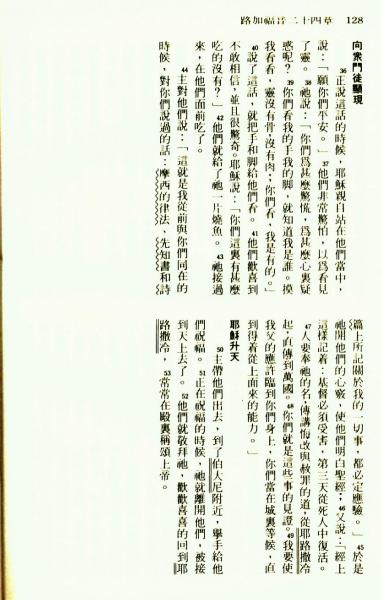 128　路加福音二十四章
向衆門徒顯現
36正說這話的時候，耶穌親自站在他們當中，
說：「願你們平安。」37他們非常驚怕，以爲看見
了靈。38祂說：「你們爲甚麼驚慌，爲甚麼心裏疑
惑呢？39你們看我的手我的脚，就知道我是誰。摸
我看看，靈沒有骨，沒有肉；你們看，我是有的。」
40說了這話，就把手和脚給他們看。41他們歡喜到
不敢相信，並且很驚奇。耶穌說：「你們這裏有甚麼
吃的沒有？」42他們就給了祂一片燒魚。43祂接過
來，在他們面前吃了。
44主對他們說：「這就是我從前與你們同在的
時候，對你們說過的話：摩西的律法、先知書和詩
篇上所記關於我的一切事，都必定應驗。」45於是
祂開他們的心竅，使他們明白聖經；46又說：「經上
這樣記着：基督必須受害，第三天從死人中復活。
47人要奉祂的名，傳講悔改與赦罪的道，從耶路撒冷
起，直傳到萬國。48你們就是這些事的見證。49我要使
我父的應許臨到你們身上，你們當在城裏等候，直
到得着從上面來的能力。」
耶穌升天
50主帶他們出去，到了伯大尼附近，舉手給他
們祝福。51正在祝福的時候，祂就離開他們，被接
到天上去了。52他們就敬拜祂，歡歡喜喜的回到耶
路撒冷，53常常在殿裏稱頌上帝。